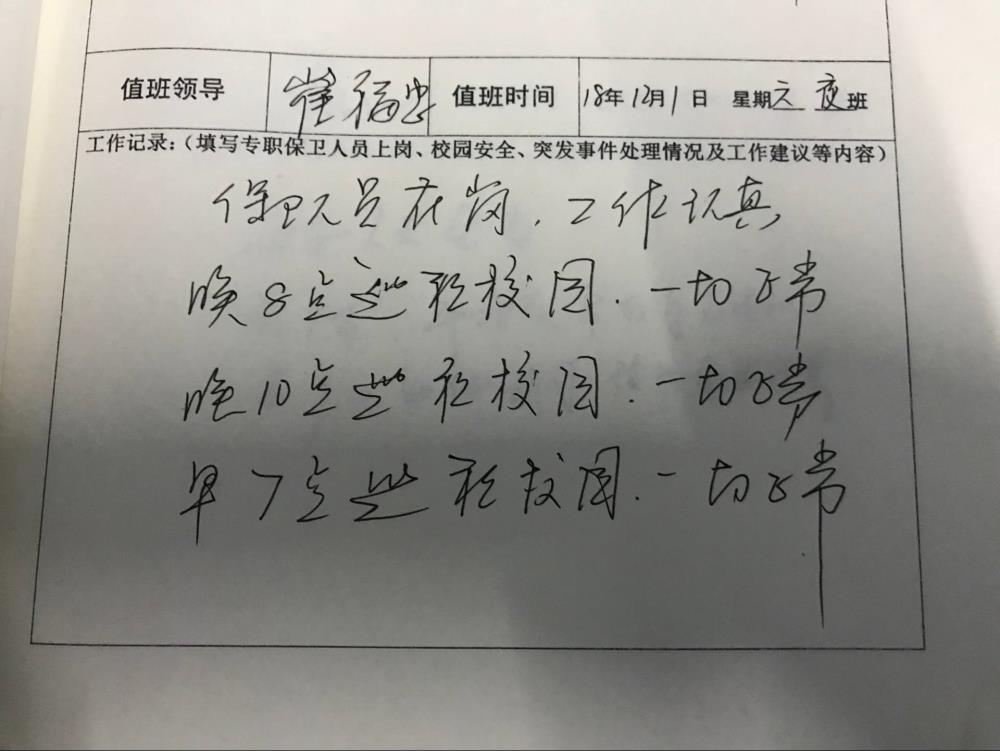 值班领导 崔福忠 值班时间 18年12月1日 星期六 夜班
工作记录:(填写专职保卫人员上岗、校园安全、突发事件处理情况及工作建议等内容)
保卫人员在岗,工作认真
晚8点巡视校园.一切正常
晚10点巡视校园.一切正常
早7点巡视校园.一切正常